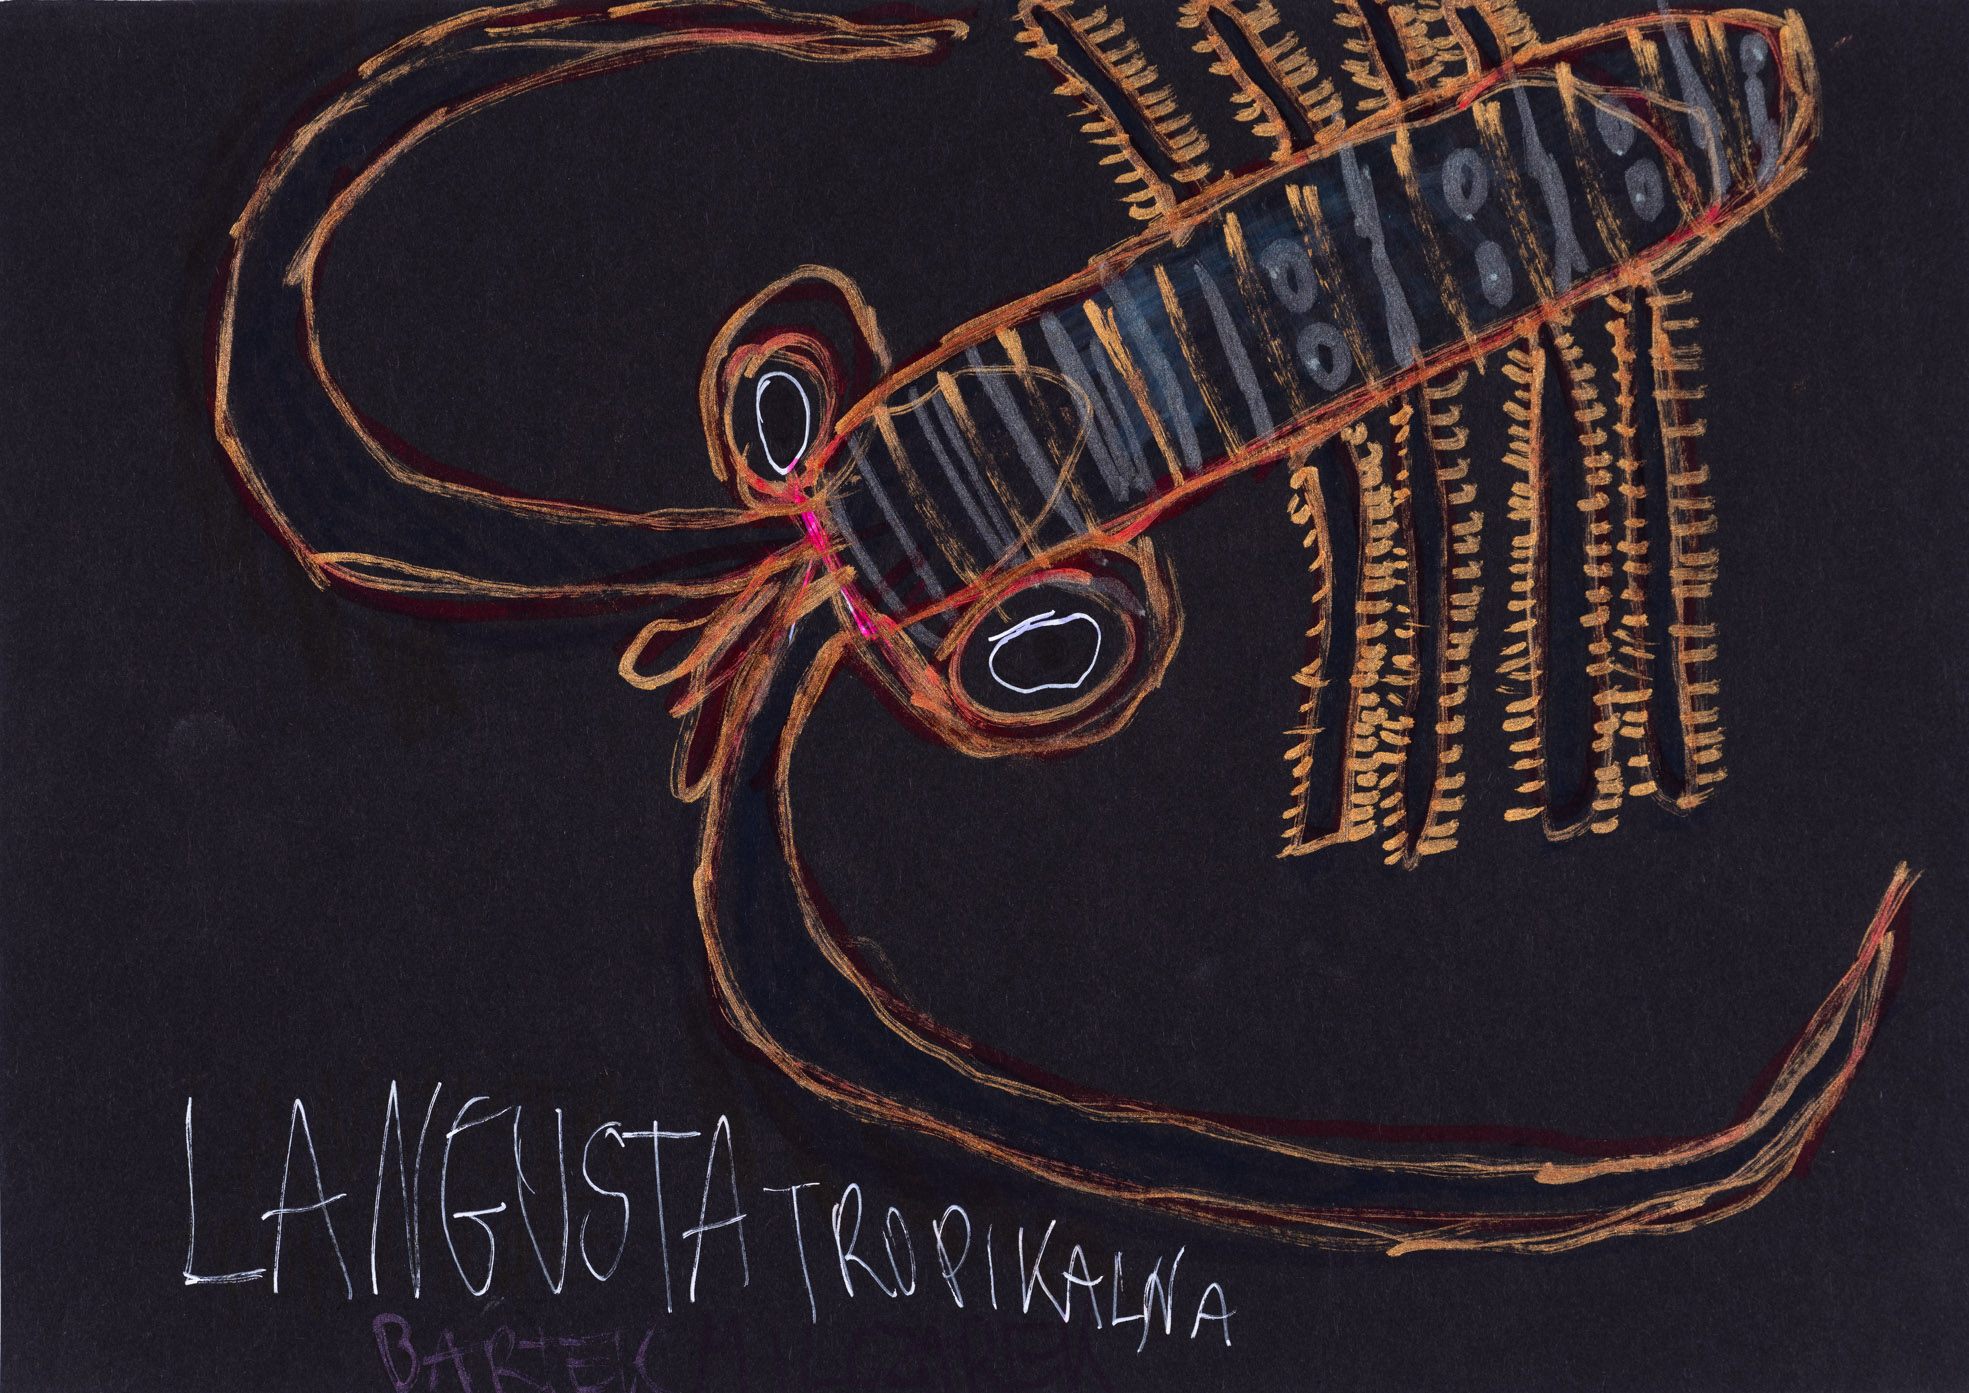 LANGUSTA TROPIKALNA
BARTEK